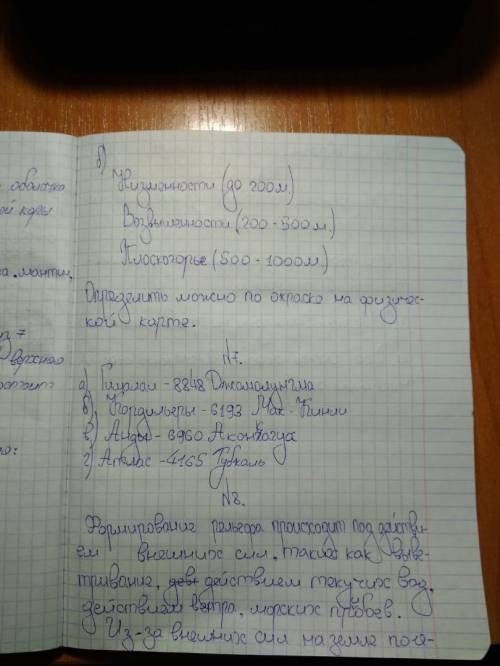 оболочка
ой коры
а, мантии,
верхнего
б)
Низменности (до 200м)
Возвышенности (200-500м.)
Плоскогорье (500-1000м.)
Определить можно по окраске на физичес-
кой карте.
№7.
а) Гималаи - 8848 Джомолунгма
в) Кордильеры - 6193 Мак-Кинли
б) Анды - 6960 Аконкогуа
г) Атлас - 4165 Тубкаль
№8.
Формирование рельефа происходит под действи-
ем внешних сил, таких как выве-
тривание, действием текучих вод,
действием ветра, морских прибоев.
Из-за внешних сил на земле поя-